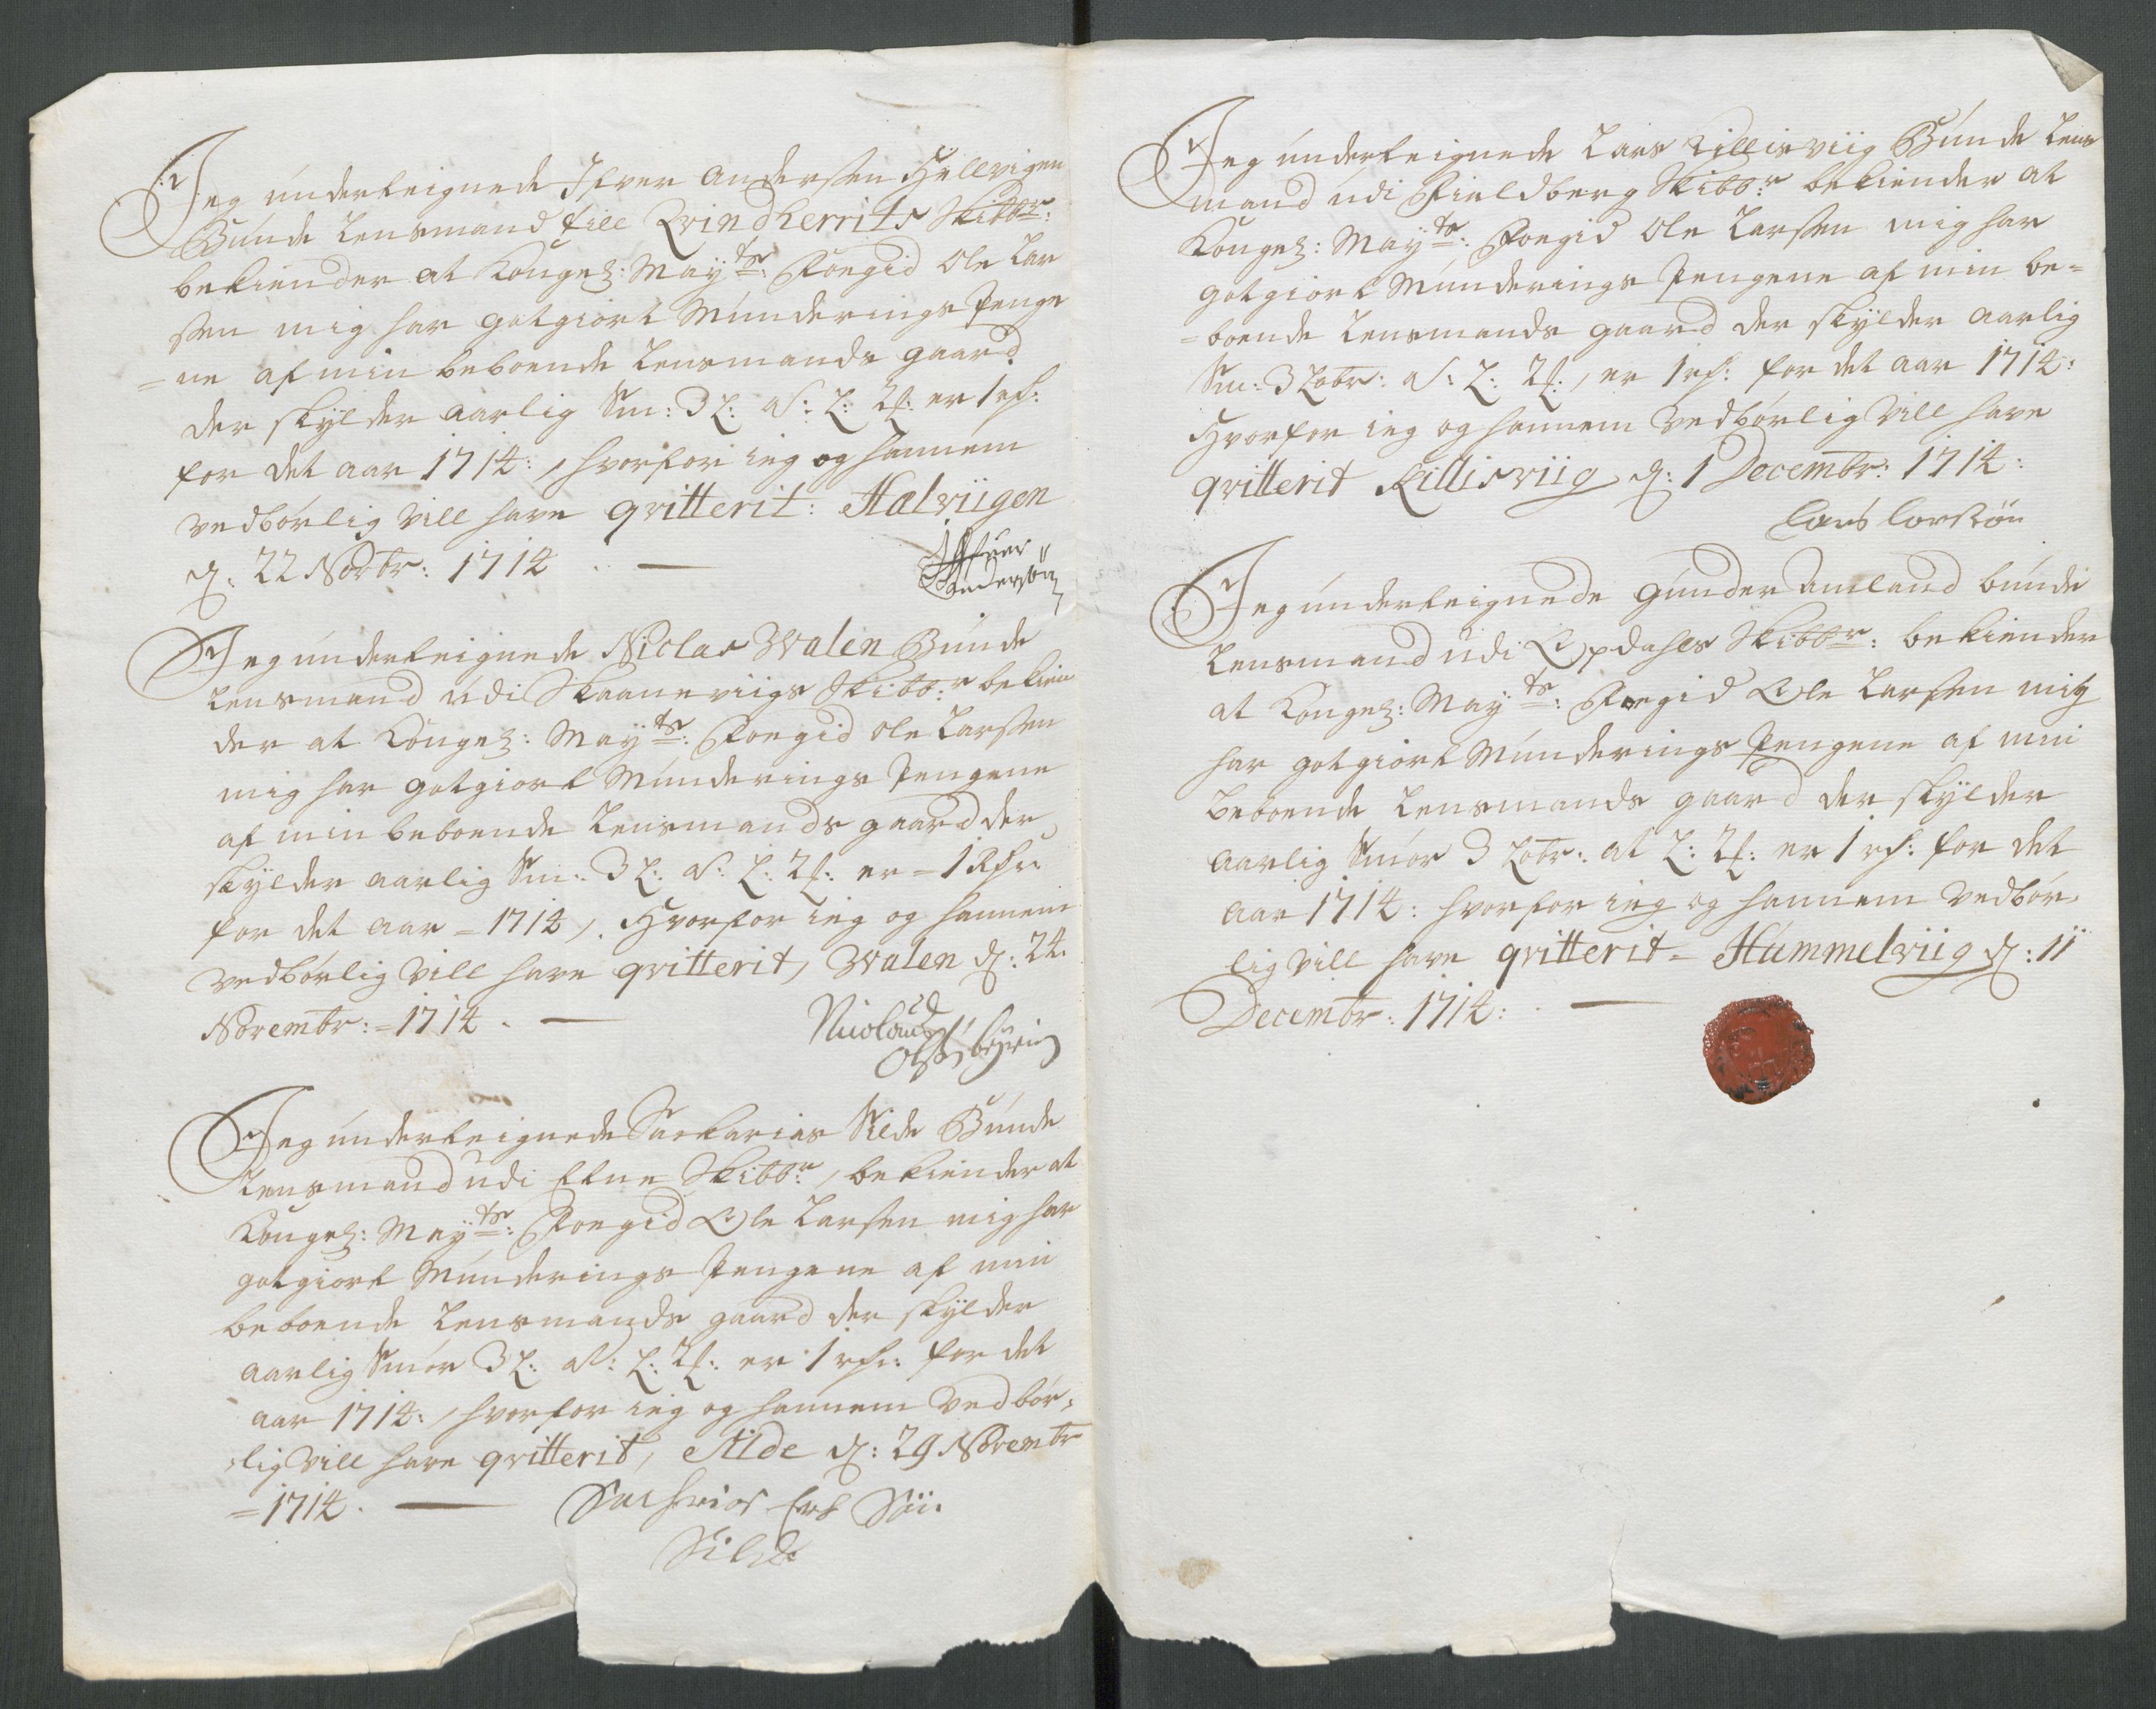 Jeg underteignede Ifver Andersen Hellvigen
Bunde Lensmand till Qvindherrits Skibbr:
bekiender at Kongel: Mayts: Foegid Ole Lar
sen mig har gotgiort Munderings Penge
=ne af min beboende Lensmands gaard
der skylder aarlig Sm: 3 L: a: L: 2ſ: er 1 rh:
for det aar 1714:, hvorfor ieg og hannem
vedbørlig vill have qvitterit: Halviigen
d: 22 Novbr: 1714
Iffuer
Andersøn
Jeg underteignede Niclas Walen Bunde
Lensmand udi Skaaneviigs Skibbr: bekien
der at Kongel: Mayts: Foegid Ole Larsen
mig har gotgiort Munderings Pengene
af min beboende Lensmands gaard der
skylder aarlig Sm: 3 L: a: L: 2ſ: er = 1 Rhr:
for det aar = 1714,. Hvorfor ieg og hannem
vedbørlig vill have qvitterit, Walen d: 24.
Novembr: = 1714.
Nicolaus
Jeg underteignede Sackarias Silde Bunde
Lensmand udi Etne Skibbr:, bekiender at
Kongel: Mayts: Foegid Ole Larsen mig har
gotgiort Munderings Pengene af min
beboende Lensmands gaard der skylder
aarlig Smør 3 L: at: L: 2ſ: er 1 rhr: for det
aar 1714:, hvorfor ieg og hannem vedbør=
=lig vill have qvitterit, Silde d: 29 Novembr
=1714.
Sachrias Søn
Silde
Jeg underteignede Lars Killisviig Bunde Lens
mand udi Fieldberg Skibbr: bekiender at
Kongel: Mayts: Foegid Ole Larsen mig har
gotgiort Munderings Pengene af min be=
=boende Lensmands gaard der skylder aarlig
Sm: 3 Løbr: a: L: 2ſ:, er 1 rh: for det aar 1714:
Hvorfor ieg og hannem vedbørlig vill have
qvitterit Killisviig d: 1 Decembr: 1714:
Lars Larsøn
Jeg underteignede Gunder Amland bunde
Lensmand udi Opdahls Skibbr: bekiender
at Kongel: Mayts: Foegid Ole Larsen mig
har gotgiort Munderings Pengene af min
beboende Lensmands gaard der skylder
aarlig Smør 3 Løbr: at L: 2ſ: er 1 rh: for det
aar 1714: hvorfor ieg og hannem vedbør=
lig vill have qvitterit = Hummelviig d: 11
Decembr: 1714: